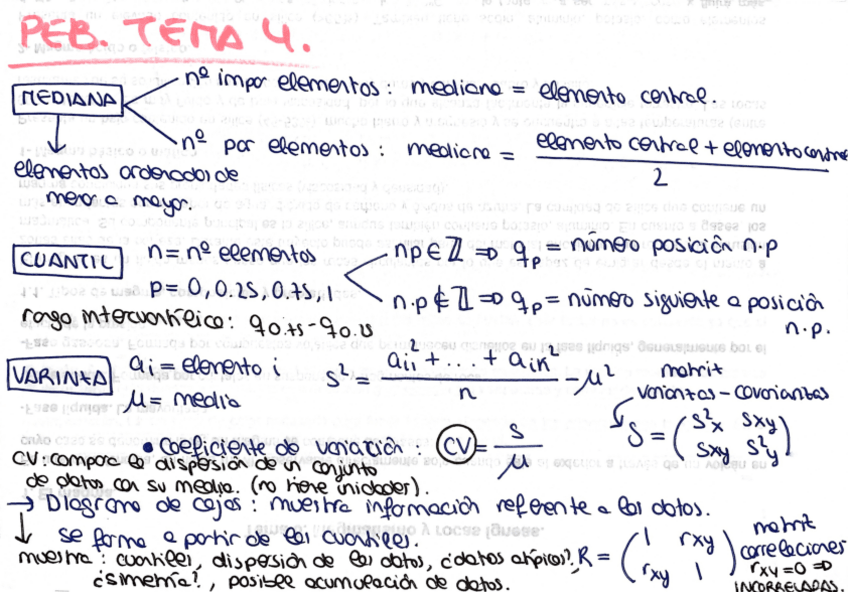 PEB. TEMA 4.
MEDIANA
nº impar elementos: mediana = elemento central.
nº par elementos: mediana = elemento central + elemento central / 2
elementos ordenados de
menor a mayor.
CUANTIL n = nº elementos
p = 0, 0.25, 0.75, 1
np ∈ ℤ ⇒ qp = número posición n·p
n·p ∉ ℤ ⇒ qp = número siguiente a posición
n·p.
rango intercuantílico: q0.75 - q0.25
VARINZA ai = elemento i
μ = media
s² = (ai1² + ... + ain²) / n - μ²
matriz
varianzas - covarianzas
S = (s²x sxy
sxy s²y)
• coeficiente de variación: CV = s / μ
CV: compara la dispersión de un conjunto
de datos con su media. (no tiene unidades).
→ Diagrama de cajas: muestra información referente a los datos.
↓ se forma a partir de los cuantiles.
muestra: cuantiles, dispersión de los datos, ¿datos atípicos?,
¿simetría?, posible acumulación de datos.
R = (1 rxy
rxy 1)
matriz
correlaciones
rxy = 0 ⇒
INCORRELADAS.